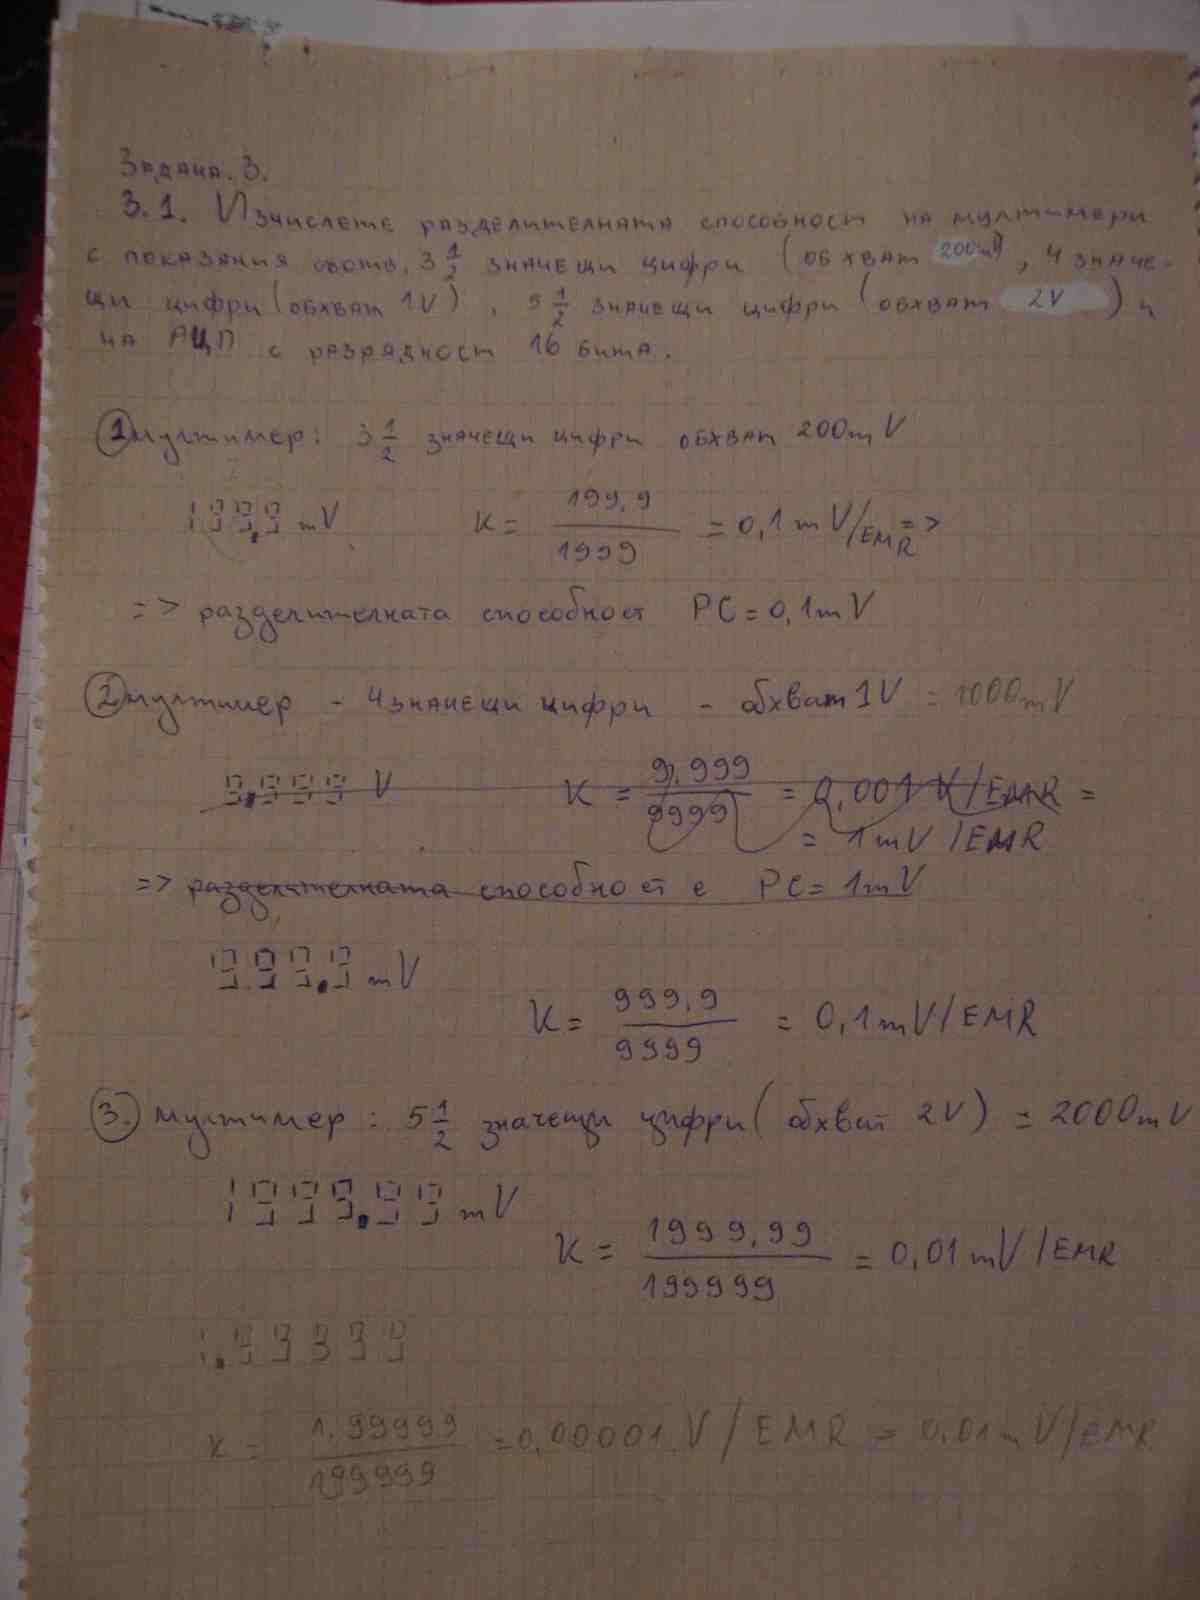 Задача. 3.
3.1. Изчислете разделителната способност на мултимери
с показания съотв. 3 1/2 значещи цифри (обхват 200mV), 4 значе-
щи цифри (обхват 1V), 5 1/2 значещи цифри (обхват 2V) и
на АЦП с разрядност 16 бита.
① мултимер: 3 1/2 значещи цифри обхват 200mV
199.9 mV K = 199,9 / 1999 = 0,1mV/EMR =>
=> разделителната способност РС = 0,1mV
② мултимер - 4 значещи цифри - обхват 1V = 1000mV
9.999 V K = 9,999 / 9999 = 0,001 V/EMR =
= 1mV/EMR
=> разделителната способност е РС = 1mV
999.9 mV
K = 999,9 / 9999 = 0,1mV/EMR
③. мултимер: 5 1/2 значещи цифри (обхват 2V) = 2000mV
1999.99 mV
K = 1999,99 / 199999 = 0,01mV/EMR
1.99999
K = 1,99999 / 199999 = 0,00001V/EMR = 0,01mV/EMR